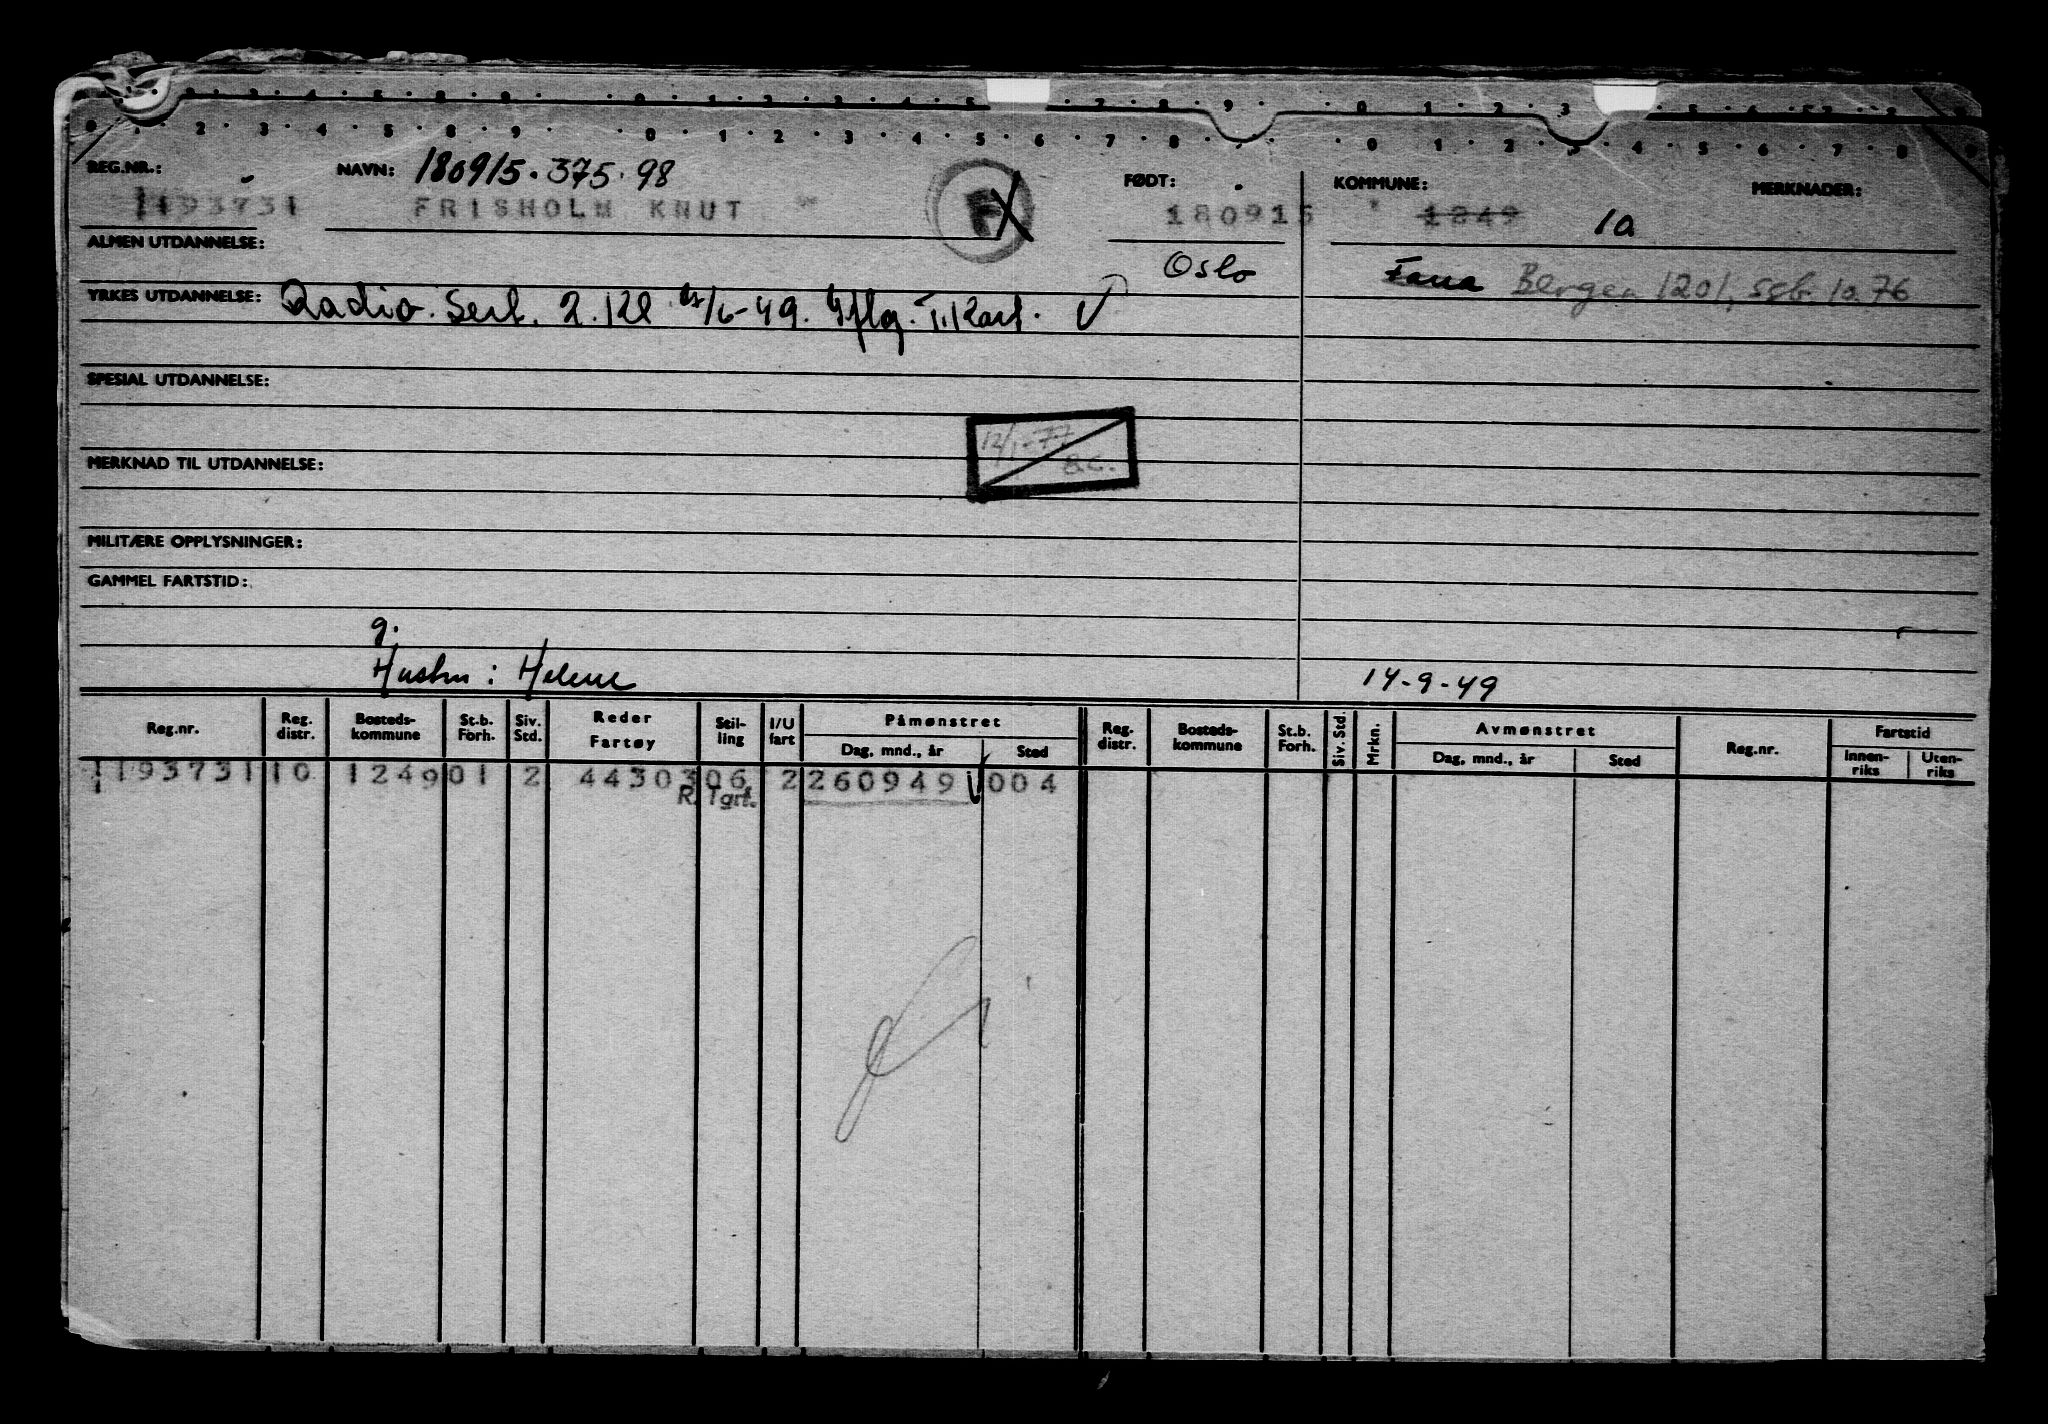 2 · 3 · 4 · 5 · 8 · 9 · · 0 · 1 · 2 · 3 · 4 · 5 · 7 · 8 · 9 · · 0 · 1 · 2 · 3 · 5 · 6
0 · 1 · 2 · 3 · 4 · 5 · 8 · 9 · · 0 · 1 · 2 · 3 · 4 · 5 · 6 · 7 · 8 · · 0 · 1 · 2 · 3 · 4 · 5 · 6 · 7 · 8
REG.NR.: NAVN: 180915.375.98 FØDT: KOMMUNE: MERKNADER:
1193731 FRISHOLM KNUT F 180915 1249 10
ALMEN UTDANNELSE: Oslo Fana Bergen 1201, 76
YRKES UTDANNELSE: Radio. Sert. 2. Kl /6-49.
SPESIAL UTDANNELSE:
12/1-77
MERKNAD TIL UTDANNELSE:
MILITÆRE OPPLYSNINGER:
GAMMEL FARTSTID:
g.
Hustru: Helene 14-9-49
Reg.nr. Reg. distr. Bosteds-kommune St.b. Forh. Siv. Std. Reder Fartøy Stil-ling I/U fart Påmønstret Dag, mnd., år Sted Reg. distr. Bosteds-kommune St.b. Forh. Siv. Std. Mrkn. Avmønstret Dag, mnd., år Sted Reg.nr. Fartstid Innen-riks Uten-riks
1193731 10 1249 01 2 44303 06 2 260949 004
R. Tgrf.